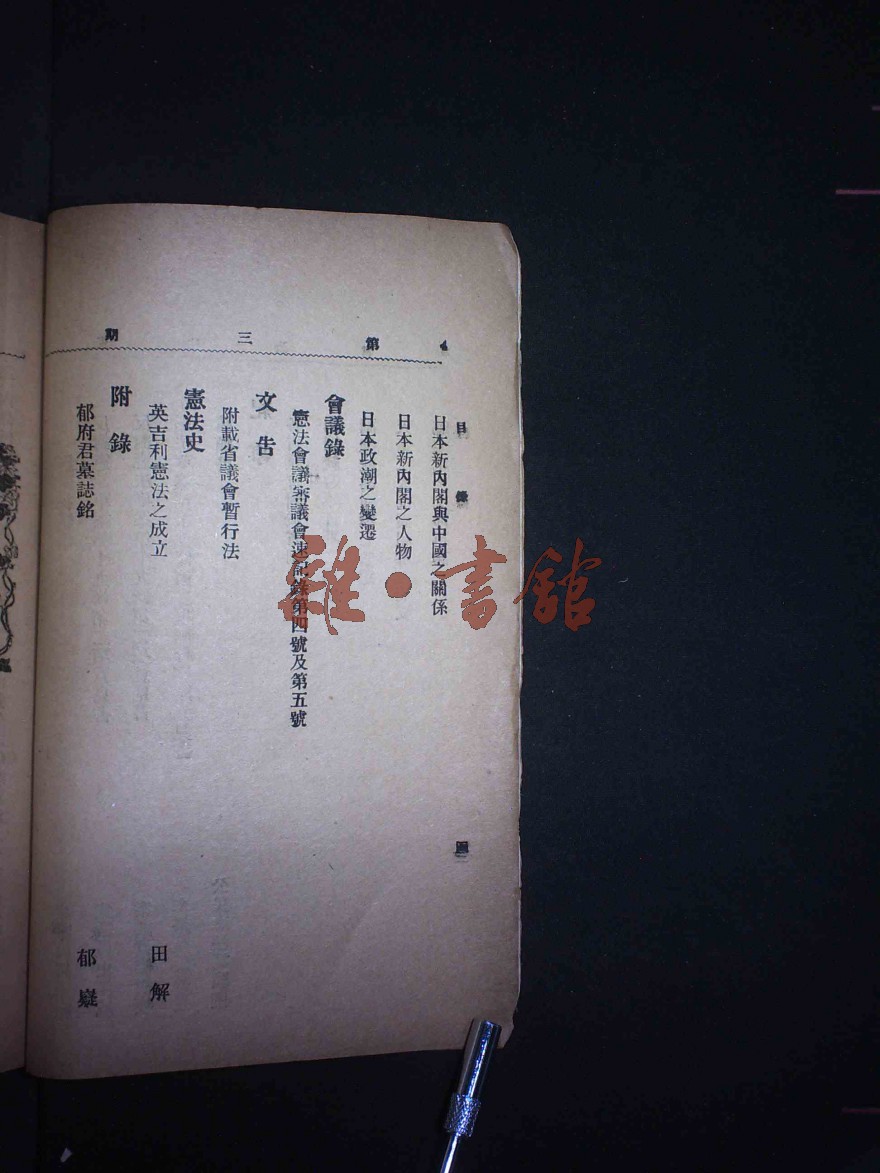 4　第三期
目錄
日本新內閣與中國之關係
日本新內閣之人物
日本政潮之變遷
會議錄
憲法會議審議會速記錄第四號及第五號
文告
附載省議會暫行法
憲法史
英吉利憲法之成立　田解
附錄
郁府君墓誌銘　郁嶷
雜·書館